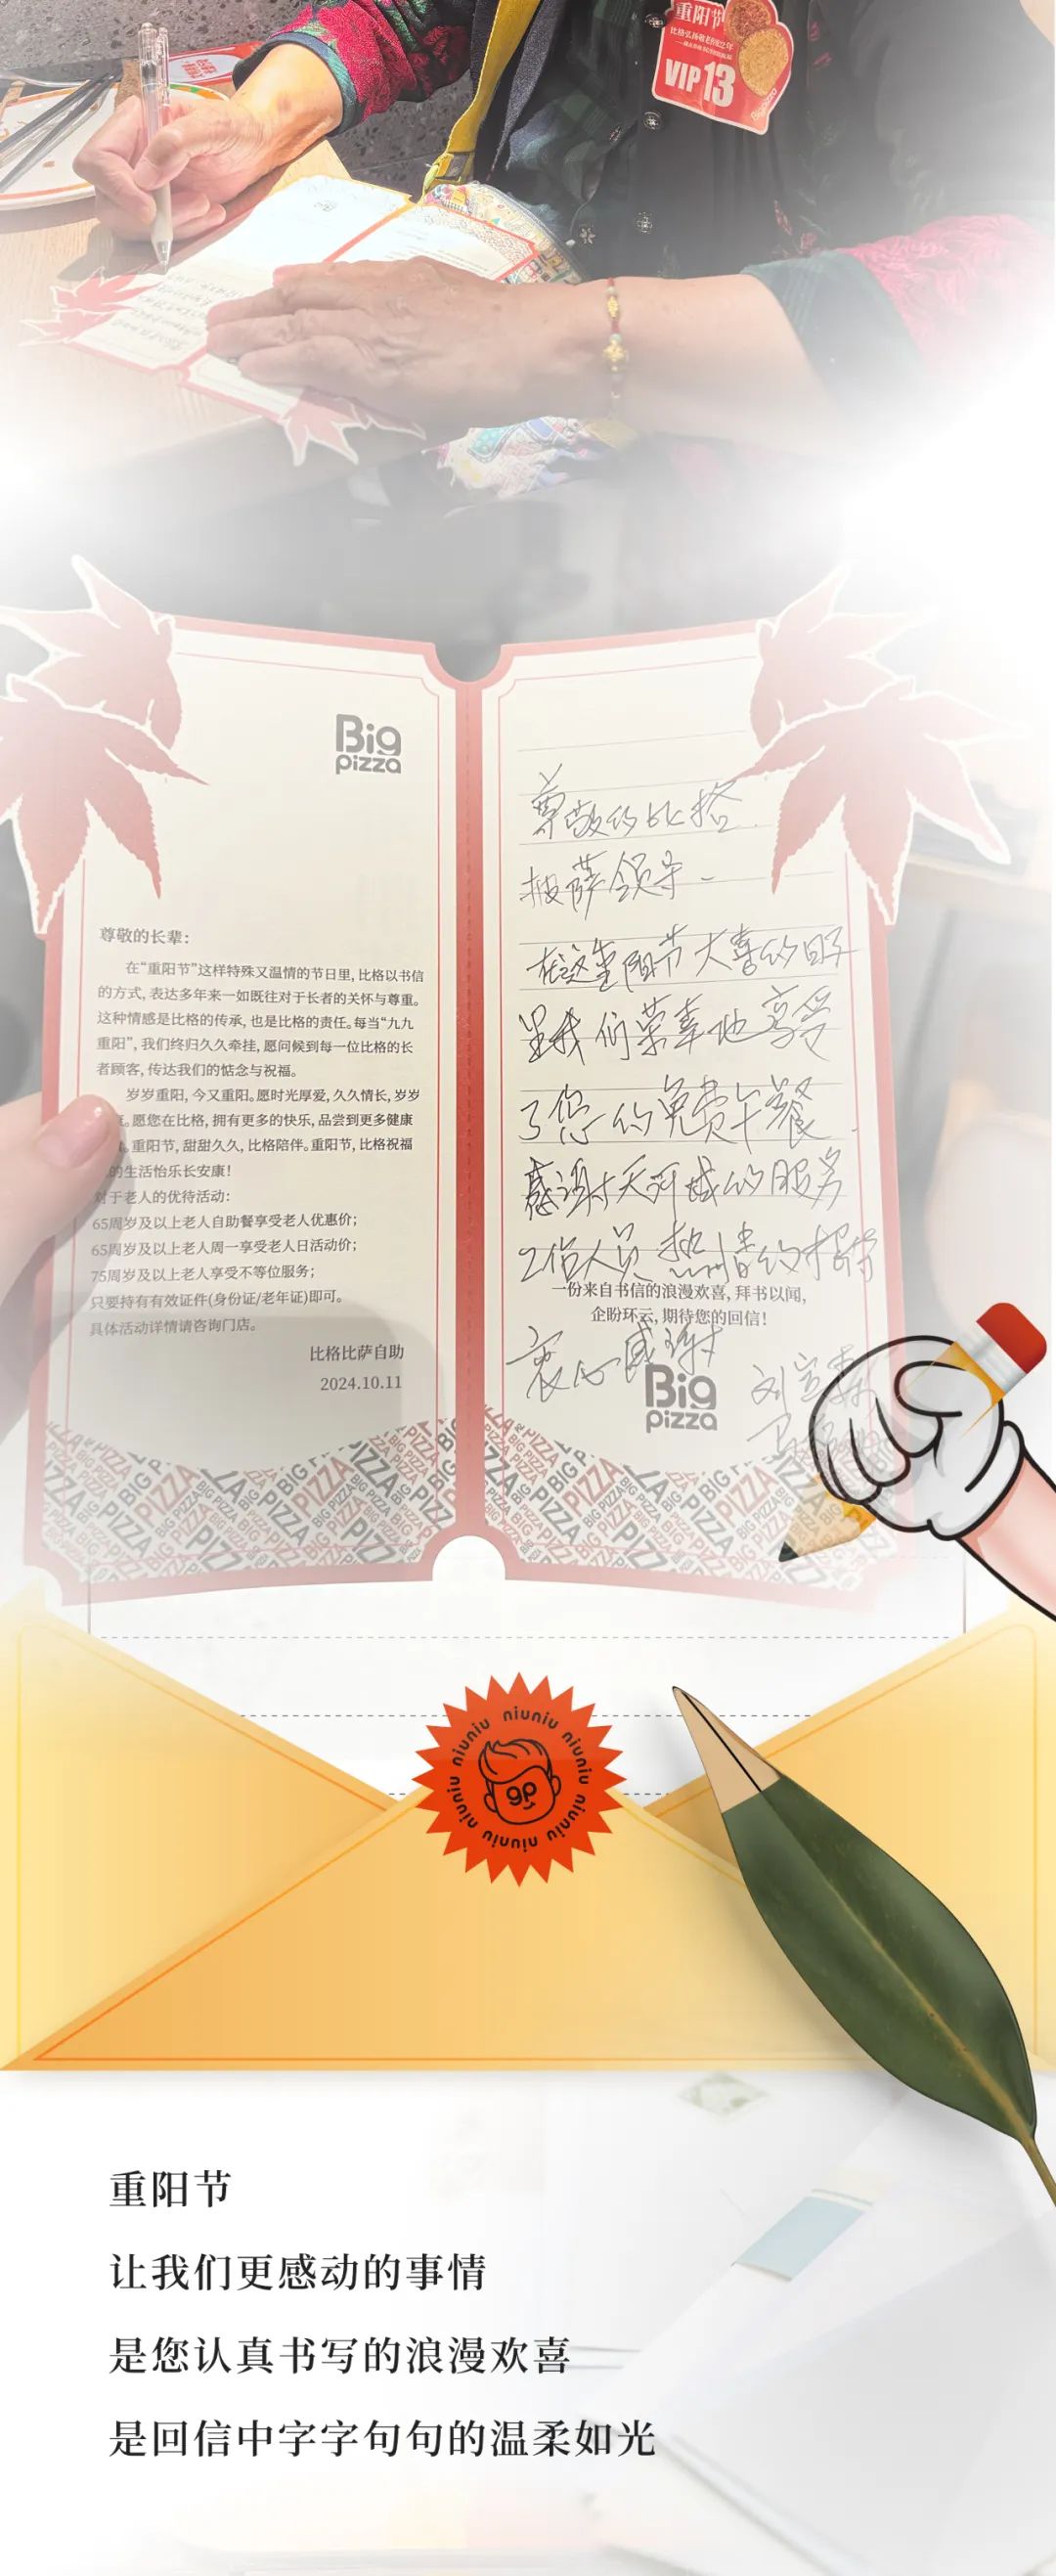 重阳节
VIP13
Big
Pizza
尊敬的长辈:
在“重阳节”这样特殊又温情的节日里, 比格以书信
的方式, 表达多年来一如既往对于长者的关怀与尊重。
这种情感是比格的传承, 也是比格的责任。每当“九九
重阳”, 我们终归久久牵挂, 愿问候到每一位比格的长
者顾客, 传达我们的惦念与祝福。
岁岁重阳, 今又重阳。愿时光厚爱, 久久情长, 岁岁
愿您在比格, 拥有更多的快乐, 品尝到更多健康
重阳节, 甜甜久久, 比格陪伴。重阳节, 比格祝福
的生活怡乐长安康!
对于老人的优待活动:
65周岁及以上老人自助餐享受老人优惠价;
65周岁及以上老人周一享受老人日活动价;
75周岁及以上老人享受不等位服务;
只要持有有效证件(身份证/老年证)即可。
具体活动详情请咨询门店。
比格比萨自助
2024.10.11
尊敬的比格
披萨领导
在这重阳节大喜的日子
里我们荣幸地享受
了您的免费午餐
感谢天河城的服务
工作人员热情的招待
一份来自书信的浪漫欢喜, 拜书以闻,
企盼环云, 期待您的回信!
衷心感谢
Big
Pizza
niuniu niuniu niuniu niuniu niuniu niuniu niuniu
重阳节
让我们更感动的事情
是您认真书写的浪漫欢喜
是回信中字字句句的温柔如光